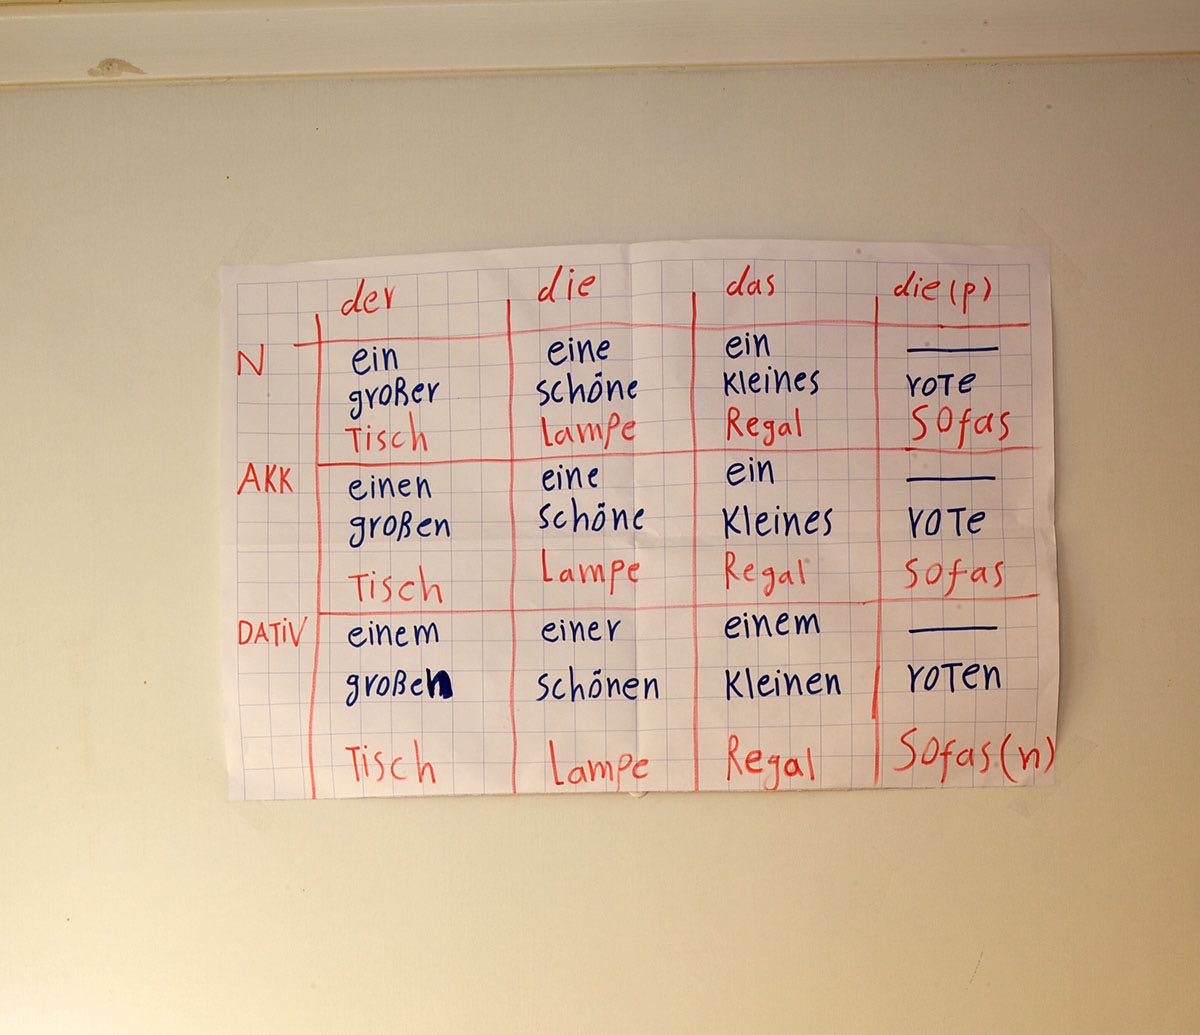 der die das die (p)
N ein eine ein —
großer schöne kleines rote
Tisch Lampe Regal Sofas
AKK einen eine ein —
großen schöne kleines rote
Tisch Lampe Regal Sofas
DATiV einem einer einem —
großen schönen kleinen roten
Tisch Lampe Regal Sofas (n)